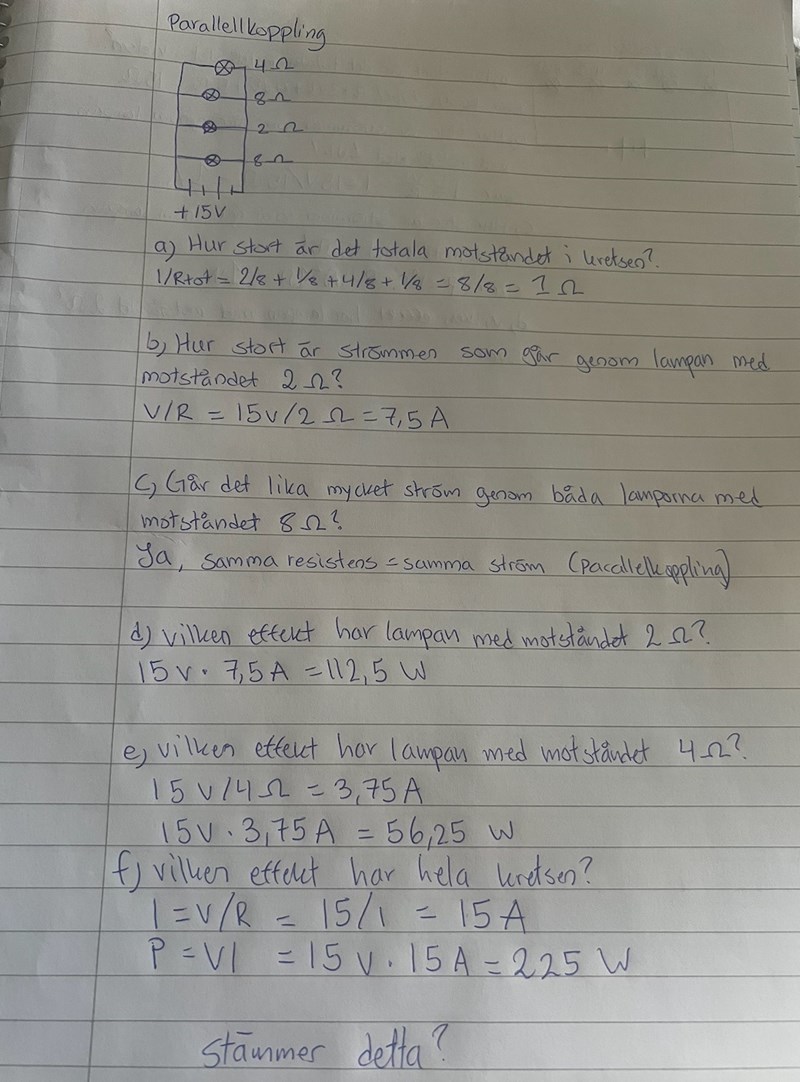 Parallellkoppling
4 Ω
8 Ω
2 Ω
8 Ω
+ 15V
a) Hur stort är det totala motståndet i kretsen?
1/Rtot = 2/8 + 1/8 + 4/8 + 1/8 = 8/8 = 1 Ω
b) Hur stort är strömmen som går genom lampan med
motståndet 2 Ω?
V/R = 15V/2 Ω = 7,5 A
c) Går det lika mycket ström genom båda lamporna med
motståndet 8 Ω?
Ja, samma resistens = samma ström (parallellkoppling)
d) vilken effekt har lampan med motståndet 2 Ω?
15 V · 7,5 A = 112,5 W
e) vilken effekt har lampan med motståndet 4 Ω?
15 V/4 Ω = 3,75 A
15V · 3,75 A = 56,25 W
f) vilken effekt har hela kretsen?
I = V/R = 15/1 = 15 A
P = VI = 15 V · 15 A = 225 W
stämmer detta?